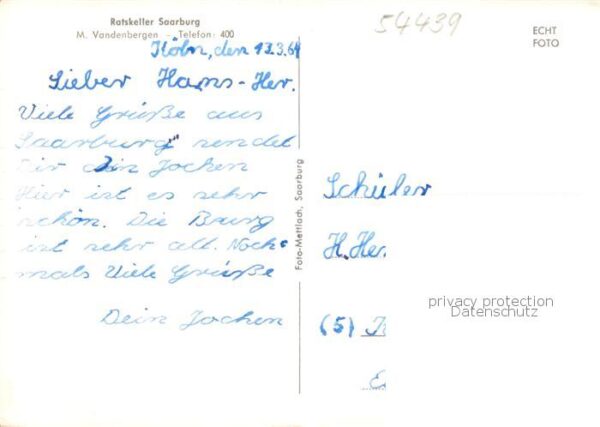 Ratskeller Saarburg
M. Vandenbergen - Telefon: 400
54439
ECHT
FOTO
Köln, den 13.3.64
Lieber Hans-Her.
Viele Grüße aus
Saarburg sendet
Dir dein Jochen
Hier ist es sehr
schön. Die Burg
ist sehr alt. Noch-
mals Viele Grüße
Dein Jochen
Foto-Mettlach, Saarburg
Schüler
H. Her.
(5)
privacy protection
Datenschutz